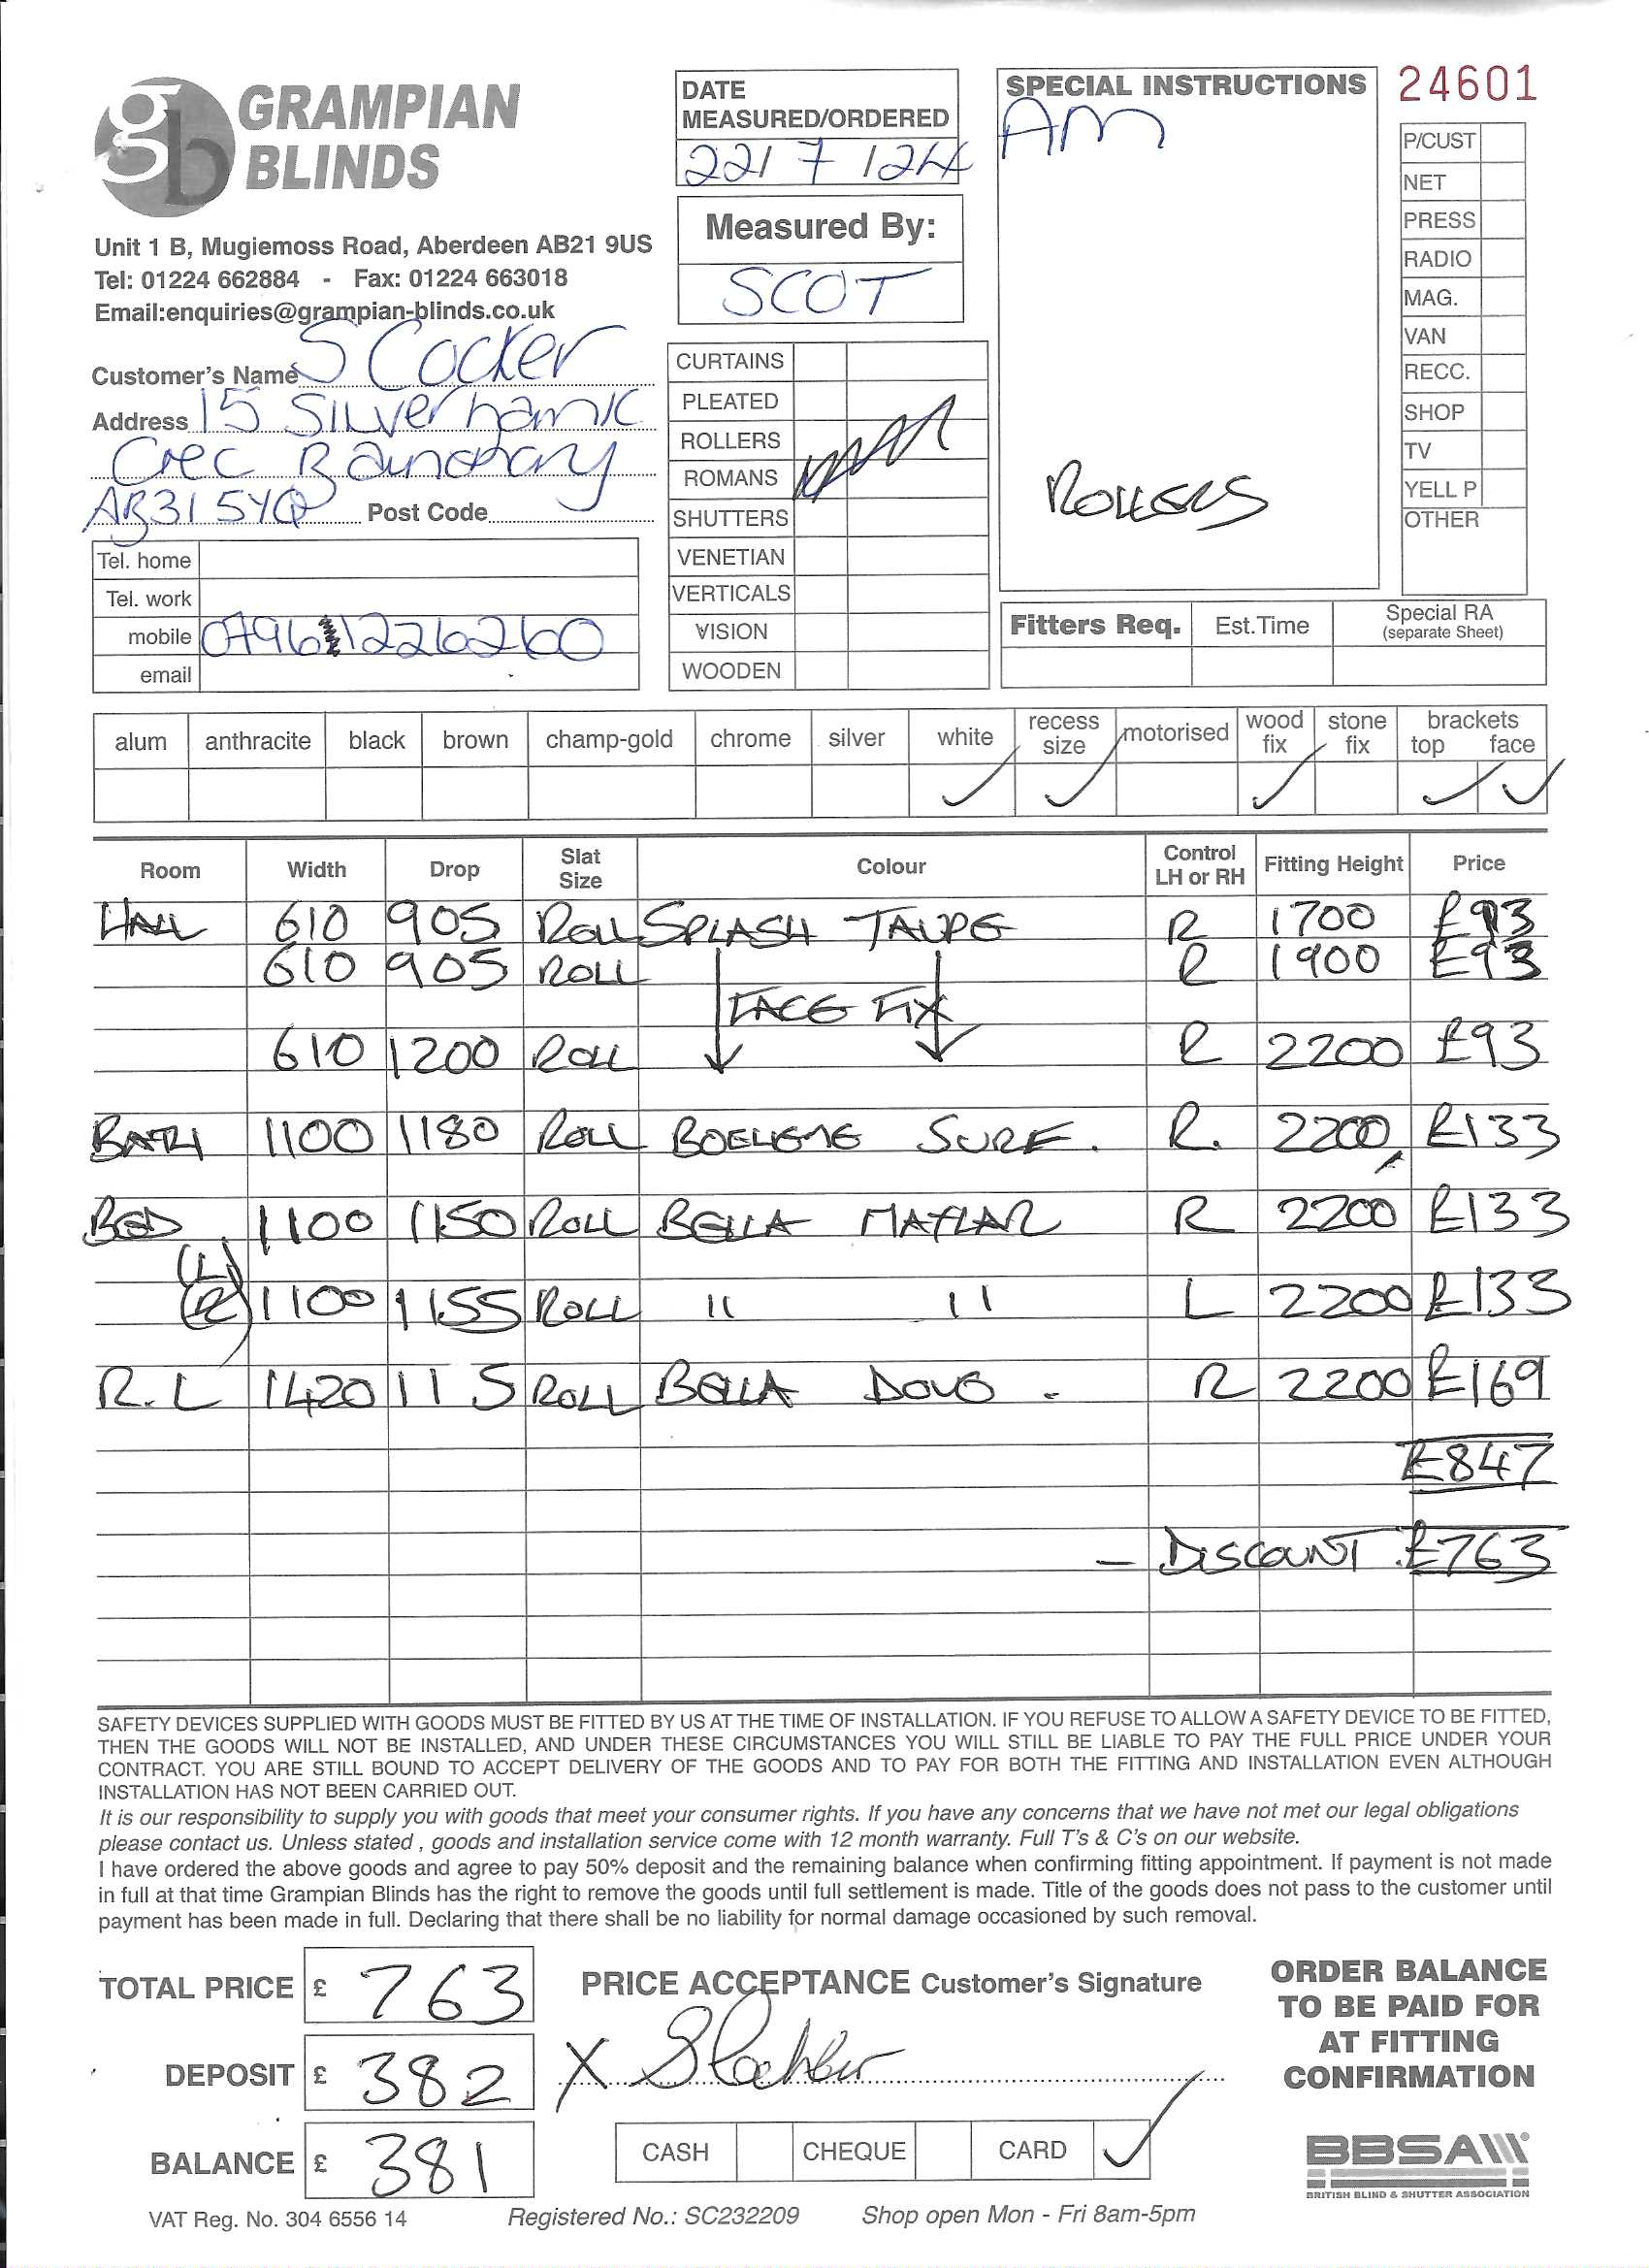 GRAMPIAN
BLINDS
Unit 1 B, Mugiemoss Road, Aberdeen AB21 9US
Tel: 01224 662884 - Fax: 01224 663018
Email:enquiries@grampian-blinds.co.uk
DATE
MEASURED/ORDERED
22/ 7 /24
Measured By:
SCOT
SPECIAL INSTRUCTIONS
AM
ROLLERS
24601
P/CUST
NET
PRESS
RADIO
MAG.
VAN
RECC.
SHOP
TV
YELL P
OTHER
Customer's Name S Cocker
Address 15 Silverbank
Crec Banchory
AB31 5YQ Post Code
Tel. home
Tel. work
mobile 07961226260
email
CURTAINS
PLEATED
ROLLERS
ROMANS
SHUTTERS
VENETIAN
VERTICALS
VISION
WOODEN
Fitters Req. Est.Time Special RA
(separate Sheet)
alum anthracite black brown champ-gold chrome silver white recess size motorised wood fix stone fix brackets top face
✓ ✓ ✓ ✓ ✓
Room Width Drop Slat Size Colour Control LH or RH Fitting Height Price
HALL 610 905 ROLL SPLASH TAUPE R 1700 £93
610 905 ROLL R 1900 £93
FACE FIX
610 1200 ROLL R 2200 £93
BATH 1100 1180 ROLL SURF. R. 2200 £133
BED (L) 1100 1150 ROLL BELLA R 2200 £133
(R) 1100 1155 ROLL " " L 2200 £133
R.L 1420 11 5 ROLL BELLA DOVE - R 2200 £169
£847
- DISCOUNT £763
SAFETY DEVICES SUPPLIED WITH GOODS MUST BE FITTED BY US AT THE TIME OF INSTALLATION. IF YOU REFUSE TO ALLOW A SAFETY DEVICE TO BE FITTED,
THEN THE GOODS WILL NOT BE INSTALLED, AND UNDER THESE CIRCUMSTANCES YOU WILL STILL BE LIABLE TO PAY THE FULL PRICE UNDER YOUR
CONTRACT. YOU ARE STILL BOUND TO ACCEPT DELIVERY OF THE GOODS AND TO PAY FOR BOTH THE FITTING AND INSTALLATION EVEN ALTHOUGH
INSTALLATION HAS NOT BEEN CARRIED OUT.
It is our responsibility to supply you with goods that meet your consumer rights. If you have any concerns that we have not met our legal obligations
please contact us. Unless stated , goods and installation service come with 12 month warranty. Full T's & C's on our website.
I have ordered the above goods and agree to pay 50% deposit and the remaining balance when confirming fitting appointment. If payment is not made
in full at that time Grampian Blinds has the right to remove the goods until full settlement is made. Title of the goods does not pass to the customer until
payment has been made in full. Declaring that there shall be no liability for normal damage occasioned by such removal.
TOTAL PRICE £ 763
DEPOSIT £ 382
BALANCE £ 381
PRICE ACCEPTANCE Customer's Signature
X
CASH CHEQUE CARD ✓
ORDER BALANCE
TO BE PAID FOR
AT FITTING
CONFIRMATION
BBSA
BRITISH BLIND & SHUTTER ASSOCIATION
VAT Reg. No. 304 6556 14 Registered No.: SC232209 Shop open Mon - Fri 8am-5pm